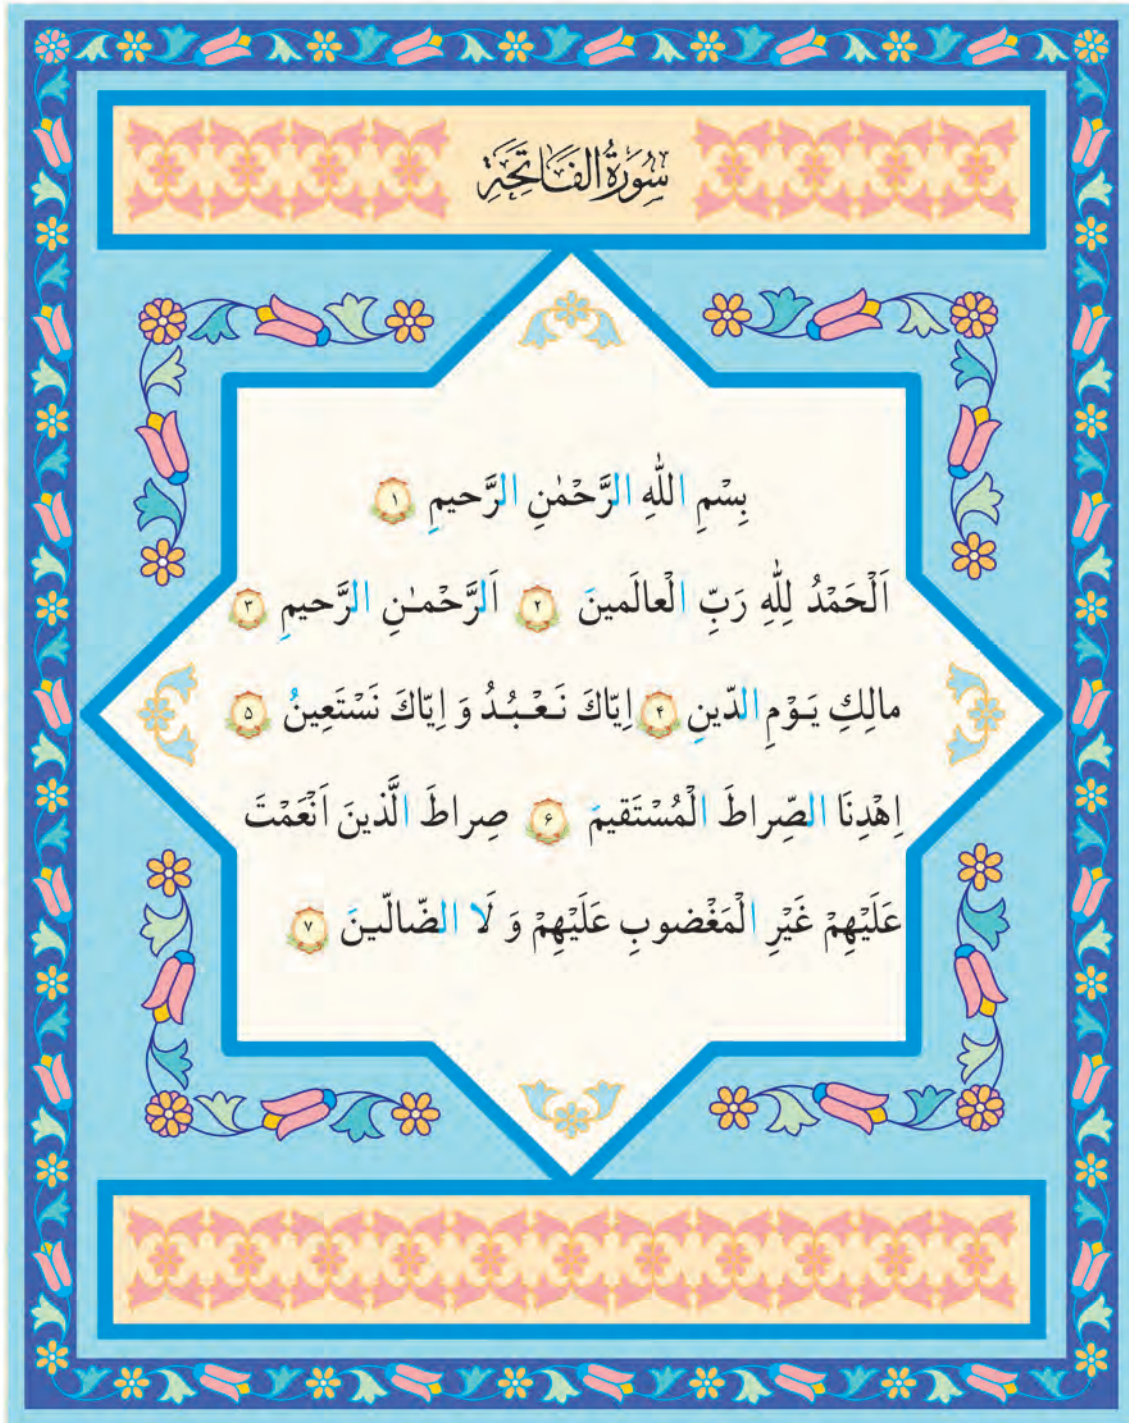 سُورَةُ الفَاتِحَةِ
بِسْمِ اللّٰهِ الرَّحْمٰنِ الرَّحيمِ ۱
اَلْحَمْدُ لِلّٰهِ رَبِّ الْعالَمينَ ۲ اَلرَّحْمـٰنِ الرَّحيمِ ۳
مالِكِ يَـوْمِ الدّينِ ۴ اِيّاكَ نَـعْـبُـدُ وَ اِيّاكَ نَسْتَعينُ ۵
اِهْدِنَا الصِّراطَ الْمُسْتَقيمَ ۶ صِراطَ الَّذينَ اَنْعَمْتَ
عَلَيْهِمْ غَيْرِ الْمَغْضوبِ عَلَيْهِمْ وَ لَا الضّالّـينَ ۷